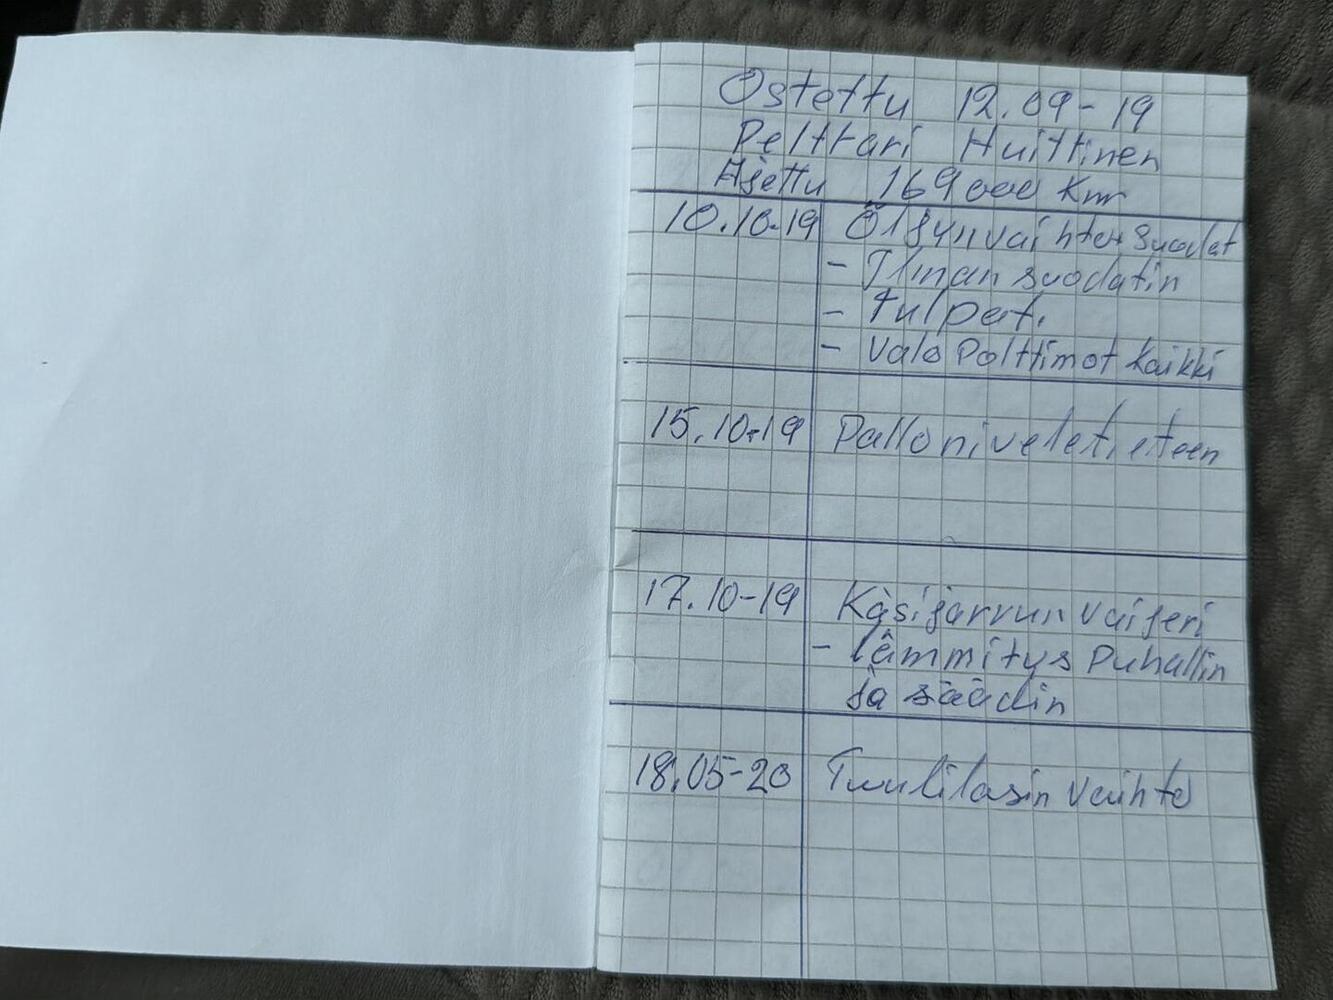 Ostettu 12.09-19
Pelttari Huittinen
Ajettu 169000 Km
10.10-19 Öljynvaihto+Suodat
- Ilman suodatin
- Tulpat.
- Valo Polttimot kaikki
15.10-19 Pallonivelet, eteen
17.10-19 Käsijarrun vaijeri
- lämmitys Puhallin
ja säädin
18.05-20 Tuulilasin vaihto